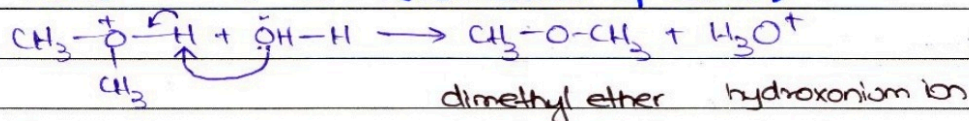 CH₃-O⁺-H + ÖH-H ⟶ CH₃-O-CH₃ + H₃O⁺
CH₃
dimethyl ether hydroxonium ion